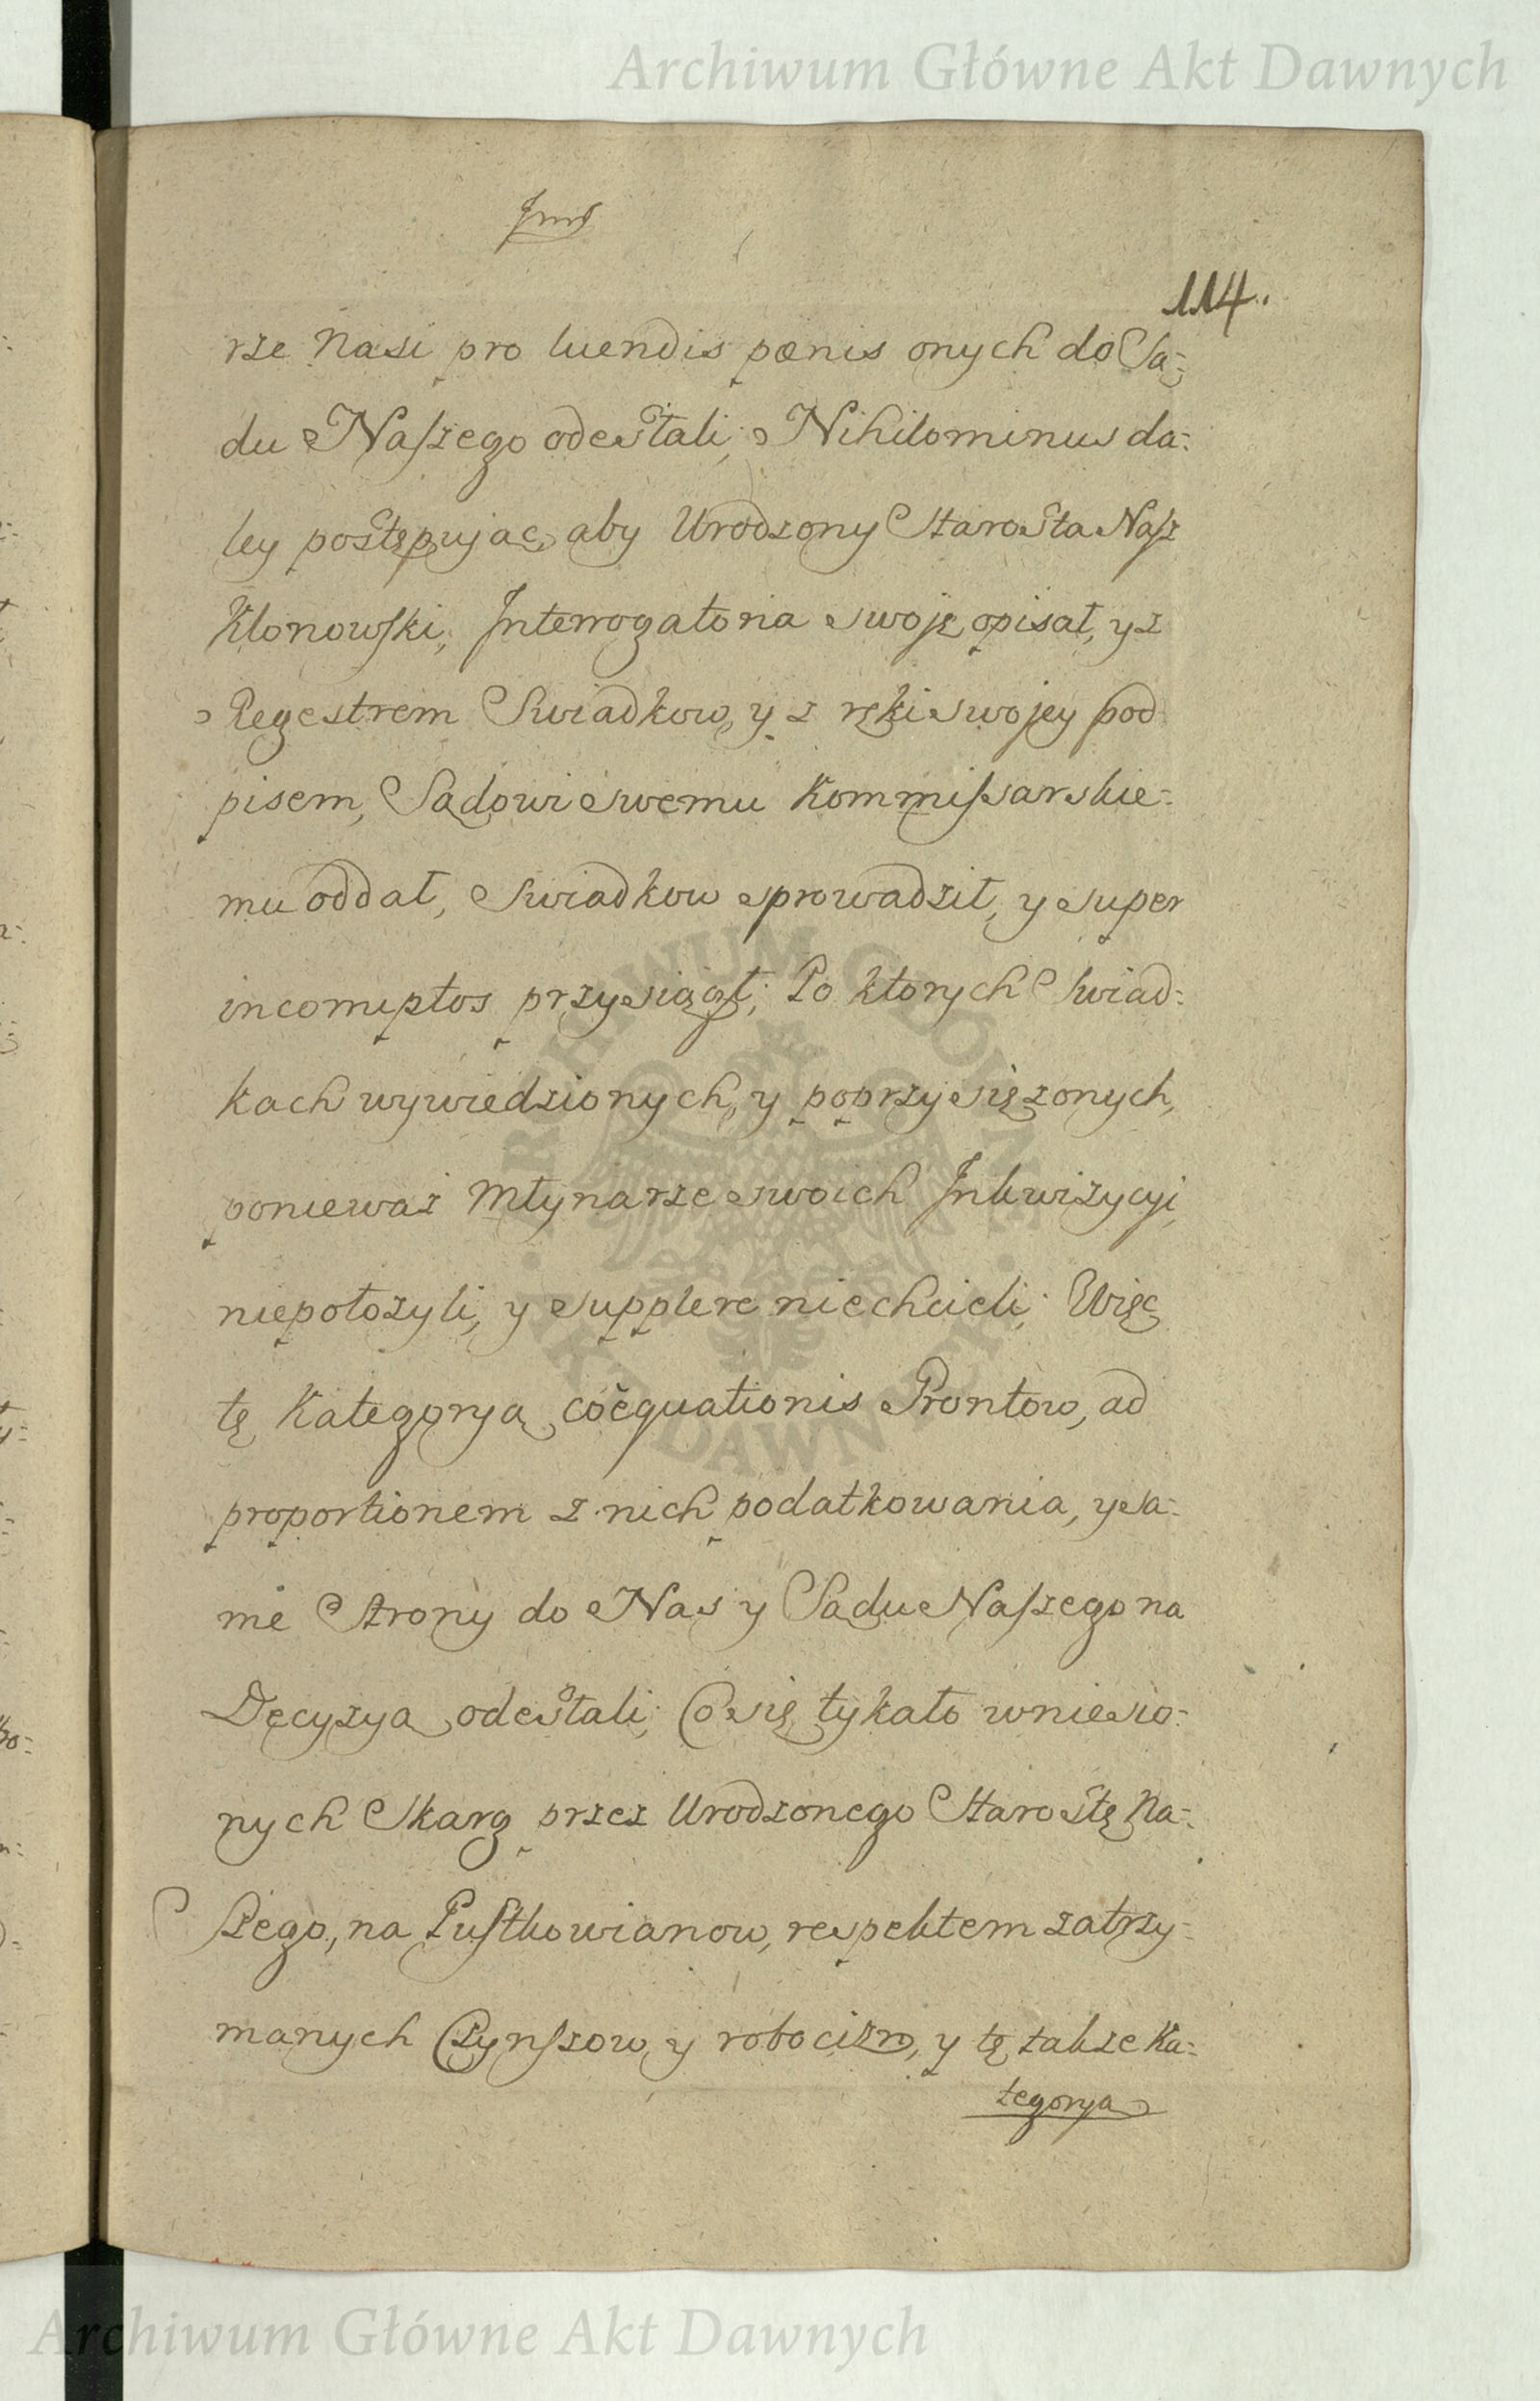 Archiwum Główne Akt Dawnych
114.
rze Nasi pro luendis pœnis onych do Są-
du Naszego odesłali; Nihilominus da-
ley postępuiąc, aby Urodzony Starosta Nasz
Klonowski, Interrogatoria swoię opisał, y z
Regestrem Swiadkow, y z ręki swojey pod
pisem, Sądowi swemu Kommissarskie-
mu oddał, Swiadkow sprowadził, y super
incorruptos przysiągł; Po ktorych Swiad-
kach wywiedzionych, y poprzysięzonych,
poniewaz Młynarze swoich Inkwizycyi,
niepołozyli, y supplere niechcieli; Więc
tę Kategoryą coëquationis Prontow, ad
proportionem z nich podatkowania, y sa-
me Strony do Nas y Sądu Naszego na
Decyzyą odesłali; Co się tykało wniesio-
nych Skarg przez Urodzonego Starostę Na-
szego, na Pustkowianow, respektem zatrzy-
manych Czynszow, y robocizn, y tę takze Ka-
tegoryą
ARCHIWUM GŁÓWNE AKT DAWNYCH
Archiwum Główne Akt Dawnych